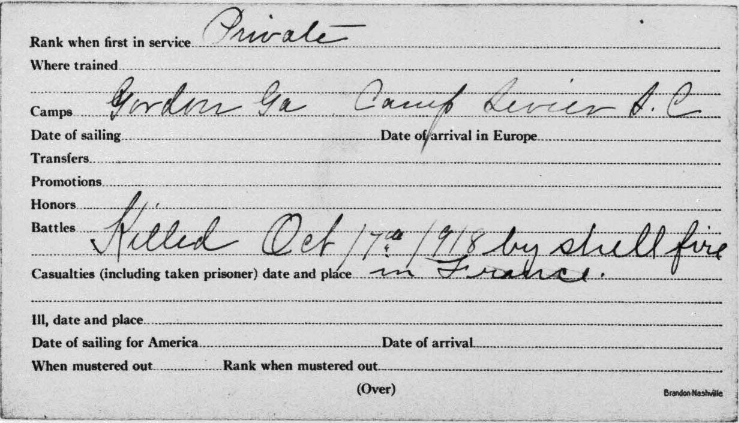 Rank when first in service Private
Where trained
Camps Gordon Ga Camp Sevier S.C
Date of sailing Date of arrival in Europe
Transfers
Promotions
Honors
Battles Killed Oct 17th 1918 by shell fire
Casualties (including taken prisoner) date and place in France.
Ill, date and place
Date of sailing for America Date of arrival
When mustered out Rank when mustered out
(Over)
Brandon-Nashville